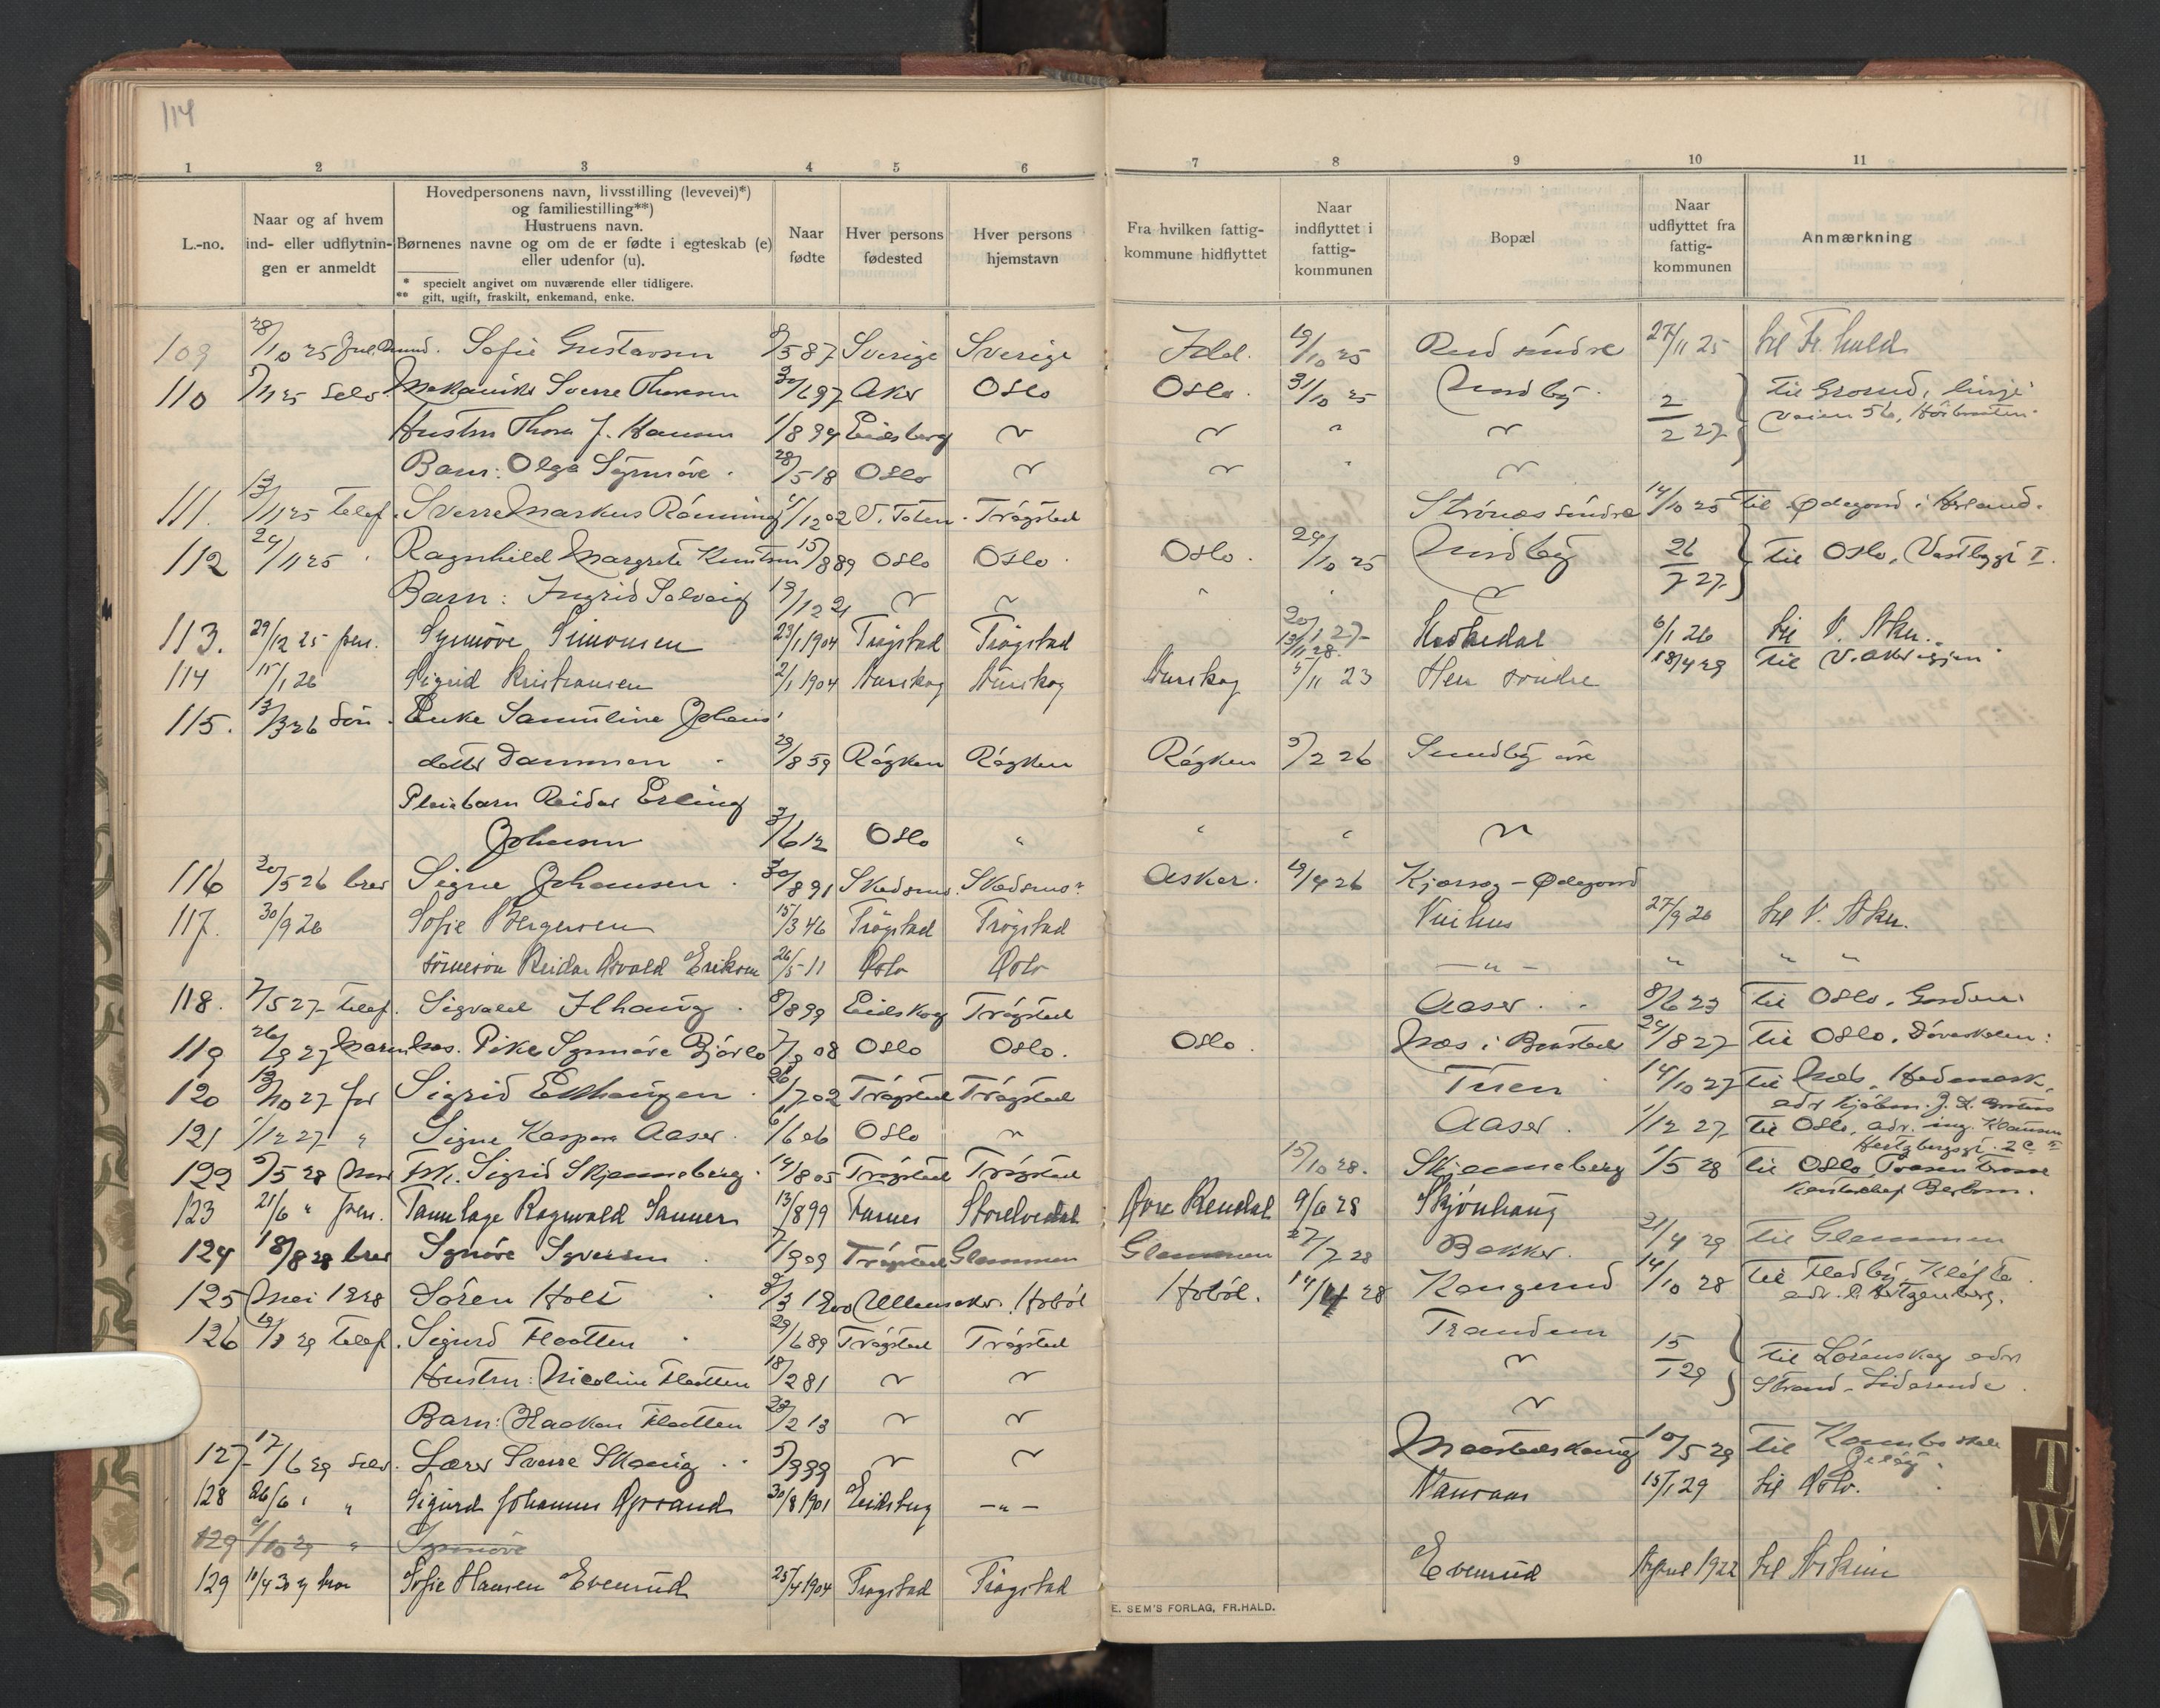 114
1 2 3 4 5 6 7 8 9 10 11
L.-no.
Naar og af hvem
ind- eller udflytnin-
gen er anmeldt
Hovedpersonens navn, livsstilling (levevei)*)
og familiestilling**)
Hustruens navn.
Børnenes navne og om de er fødte i egteskab (e)
eller udenfor (u).
* specielt angivet om nuværende eller tidligere.
** gift, ugift, fraskilt, enkemand, enke.
Naar
fødte
Hver persons
fødested
Hver persons
hjemstavn
Fra hvilken fattig-
kommune hidflyttet
Naar
indflyttet i
fattig-
kommunen
Bopæl
Naar
udflyttet fra
fattig-
kommunen
Anmærkning
109 28/10 25 Sofie Gustavsen 9/5 87 Sverige Sverige Idd. 19/10 25 Rud söndre 27/11 25 til Fr.hald
110 5/11 25 selv Mekaniker Sverre Thoresen 30/6 97 Aker Oslo Oslo. 31/10 25 Undby. 2/2 27 til Grorud, linje
Hustru Thora J. Hansen 1/8 94 Eidsberg " " " " veien 56, Höibraaten.
Barn: Olga Synnöve. 28/5 18 Oslo " " " "
111. 13/11 25 telef. Sverre Markus Rönning 4/12 02 V. Toten. Trögstad Strönes söndre 14/10 25 til Ødegaard i Herland.
112 24/11 25 Ragnhild Margrete Knutsen 15/8 89 Oslo Oslo. Oslo. 29/10 25 Undby 26/7 27 til Oslo, Vestbygt I.
Barn: Ingrid Solveig 19/12 21 " " " " "
113. 29/12 25 pers. Synnöve Simonsen 23/1 1904 Trögstad Trögstad 20/1 27 13/11 28. Heskedal 6/1 26 til V. Aker.
114 15/1 26 Sigrid Kristiansen 2/1 1904 Aurskog Aurskog Aurskog 4/11 23 Hen söndre 18/4 29 til V. Aker igjen
115. 13/3 26 Sön. Enke Samuline Johans
datter Dammen 29/8 59 Röyken Röyken Röyken 9/2 26 Sundby öre
Pleiebarn Reidar Erling
Johansen 3/6 12 Oslo " " " "
116 20/5 26 brev Signe Johansen. 30/8 91 Skedsmo. Skedsmo Asker. 19/4 26 Kjærsog - Ødegaard
117. 30/9 26 Sofie Bergersen 15/3 46 Trögstad Trögstad 27/9 26 til V. Aker.
sönnesön Reidar Osvald Eriksen 26/5 11 Oslo Oslo — " — " " "
118. 7/5 27 telef. Sigvald Ilhaug. 8/8 99 Eidskog Trögstad Aaser. 8/6 23 til Oslo, Garden.
119 26/9 27 Pike Synnöve Björlo 7/9 08 Oslo Oslo. Oslo. Næs i Baastad 29/8 27 til Oslo, Döveskolen:
120 19/10 27 Sigrid Ekhaugen 26/7 02 Trögstad Trögstad Tuen 14/10 27 til Næs, Hedemark,
121 1/12 27 " Signe Kaspara Aaser. 6/6 06 Oslo " Aaser. 1/12 27 til Oslo, adr. ing. Klausen
Hertzbergsgt. 2 c
122 9/5 28 Frk. Sigrid Skjenneberg. 14/8 05 Trögstad Trögstad 15/10 28. Skjenneberg 1/5 28 til Oslo
123 21/6 " pers. Tannlæge Ragnvald Sanner 13/8 99 Furnes Storelvedal Øvre Rendal 9/6 28 Skjönhaug
124 18/8 28 brev Synöve Syversen 7/9 09 Trögstad Glemmen Glemmen 27/7 28 Bakker. 21/4 29 til Glemmen
125 Mai 1928 Sören Holt 9/3 1900 Ullensaker. Hobøl Hobøl. 14/4 28 Kongerud 14/10 28 til Fladby, Klöfta.
126 19/3 29 telef. Sigurd Flaatten 29/6 89 Trögstad Trögstad Trandem 15/1 29 til Lörenskog adr
Hustru: Nicoline Flaatten 18/2 81 " " " Strand - Liderende
Barn: Haakon Flaatten 23/2 13 " " "
127 17/6 29 selv. Lærer Sverre Skaug.. 5/9 99 " " Maastadskaug 10/5 29 til
128 26/6 " " Sigurd Johannes Opsand 30/8 1901 Eidsberg — " — 15/1 29 til Oslo.
129 4/10 29 " Synnöve
129 10/4 30 Sofie Hansen Evenrud 25/4 1904 Trögstad Trögstad Evenrud April 1922 til Askim
E. SEM'S FORLAG, FR.HALD.
T
W